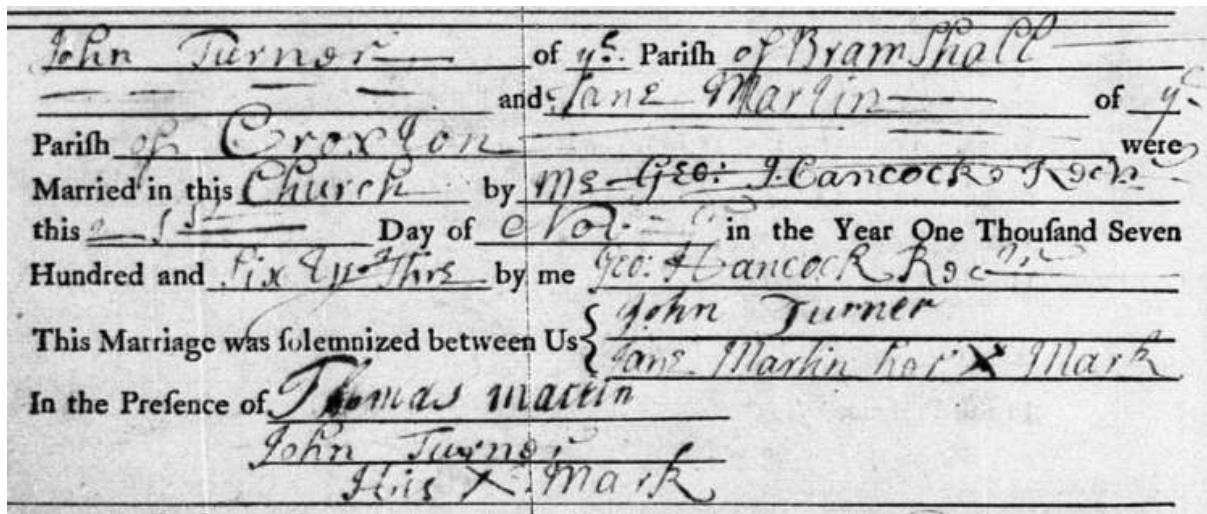 John Turner of yᵉ Pariſh of Bramshall
and Jane Martin of yᵉ
Pariſh of Croxton were
Married in this Church by me Geo: Hancock Rectʳ
this Day of Novʳ in the Year One Thouſand Seven
Hundred and Sixty Thre by me Geo: Hancock Rectʳ
This Marriage was ſolemnized between Us John Turner
Jane Martin her X Mark
In the Preſence of Thomas Martin
John Turner
His X Mark